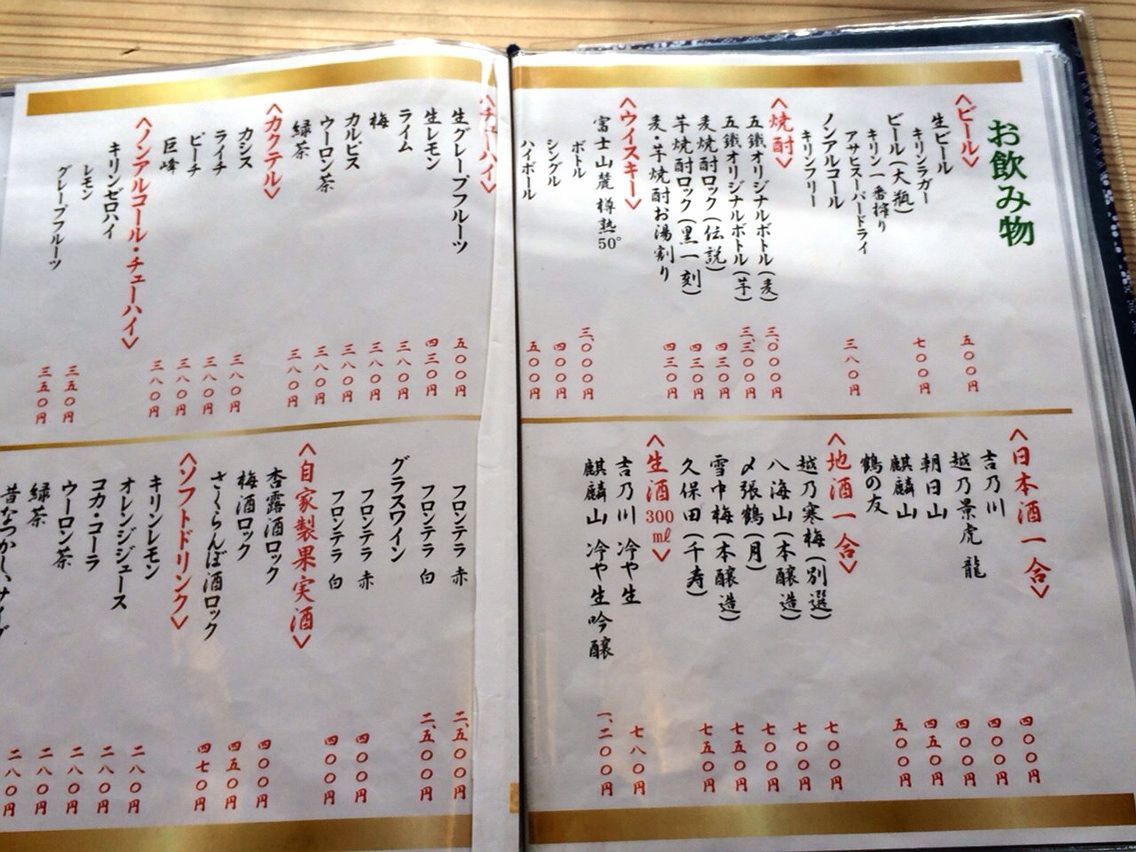 お飲み物
〈ビール〉
生ビール 五〇〇円
キリンラガー
ビール(大瓶) 七〇〇円
キリン一番搾り
アサヒスーパードライ
ノンアルコール 三八〇円
キリンフリー
〈焼酎〉
五鐵オリジナルボトル(麦) 三、〇〇〇円
五鐵オリジナルボトル(芋) 三、三〇〇円
麦焼酎ロック(伝説) 四三〇円
芋焼酎ロック(黒一刻) 四三〇円
麦・芋焼酎お湯割り 四三〇円
〈ウイスキー〉
富士山麓 樽熟50°
ボトル 三、〇〇〇円
シングル 四〇〇円
ハイボール 五〇〇円
〈日本酒一合〉
吉乃川 四〇〇円
越乃景虎 龍 四〇〇円
朝日山 四〇〇円
麒麟山 四五〇円
鶴の友 五〇〇円
〈地酒一合〉
越乃寒梅(別選) 七〇〇円
八海山(本醸造) 七〇〇円
〆張鶴(月) 七〇〇円
雪中梅(本醸造) 七五〇円
久保田(千寿) 七五〇円
〈生酒300㎖〉
吉乃川 冷や生 七八〇円
麒麟山 冷や生吟醸 一、二〇〇円
〈チューハイ〉
生グレープフルーツ 五〇〇円
生レモン 四三〇円
ライム 三八〇円
梅 三八〇円
カルピス 三八〇円
ウーロン茶 三八〇円
緑茶 三八〇円
〈カクテル〉
カシス 三八〇円
ライチ 三八〇円
ピーチ 三八〇円
巨峰 三八〇円
〈ノンアルコール・チューハイ〉
キリンゼロハイ
レモン 三五〇円
グレープフルーツ 三五〇円
フロンテラ 赤 二、五〇〇円
フロンテラ 白 二、五〇〇円
グラスワイン
フロンテラ 赤 四〇〇円
フロンテラ 白 四〇〇円
〈自家製果実酒〉
杏露酒ロック 四〇〇円
梅酒ロック 四五〇円
さくらんぼ酒ロック 四七〇円
〈ソフトドリンク〉
キリンレモン 二八〇円
オレンジジュース 二八〇円
コカ・コーラ 二八〇円
ウーロン茶 二八〇円
緑茶 二八〇円
昔なつかし、サイダ